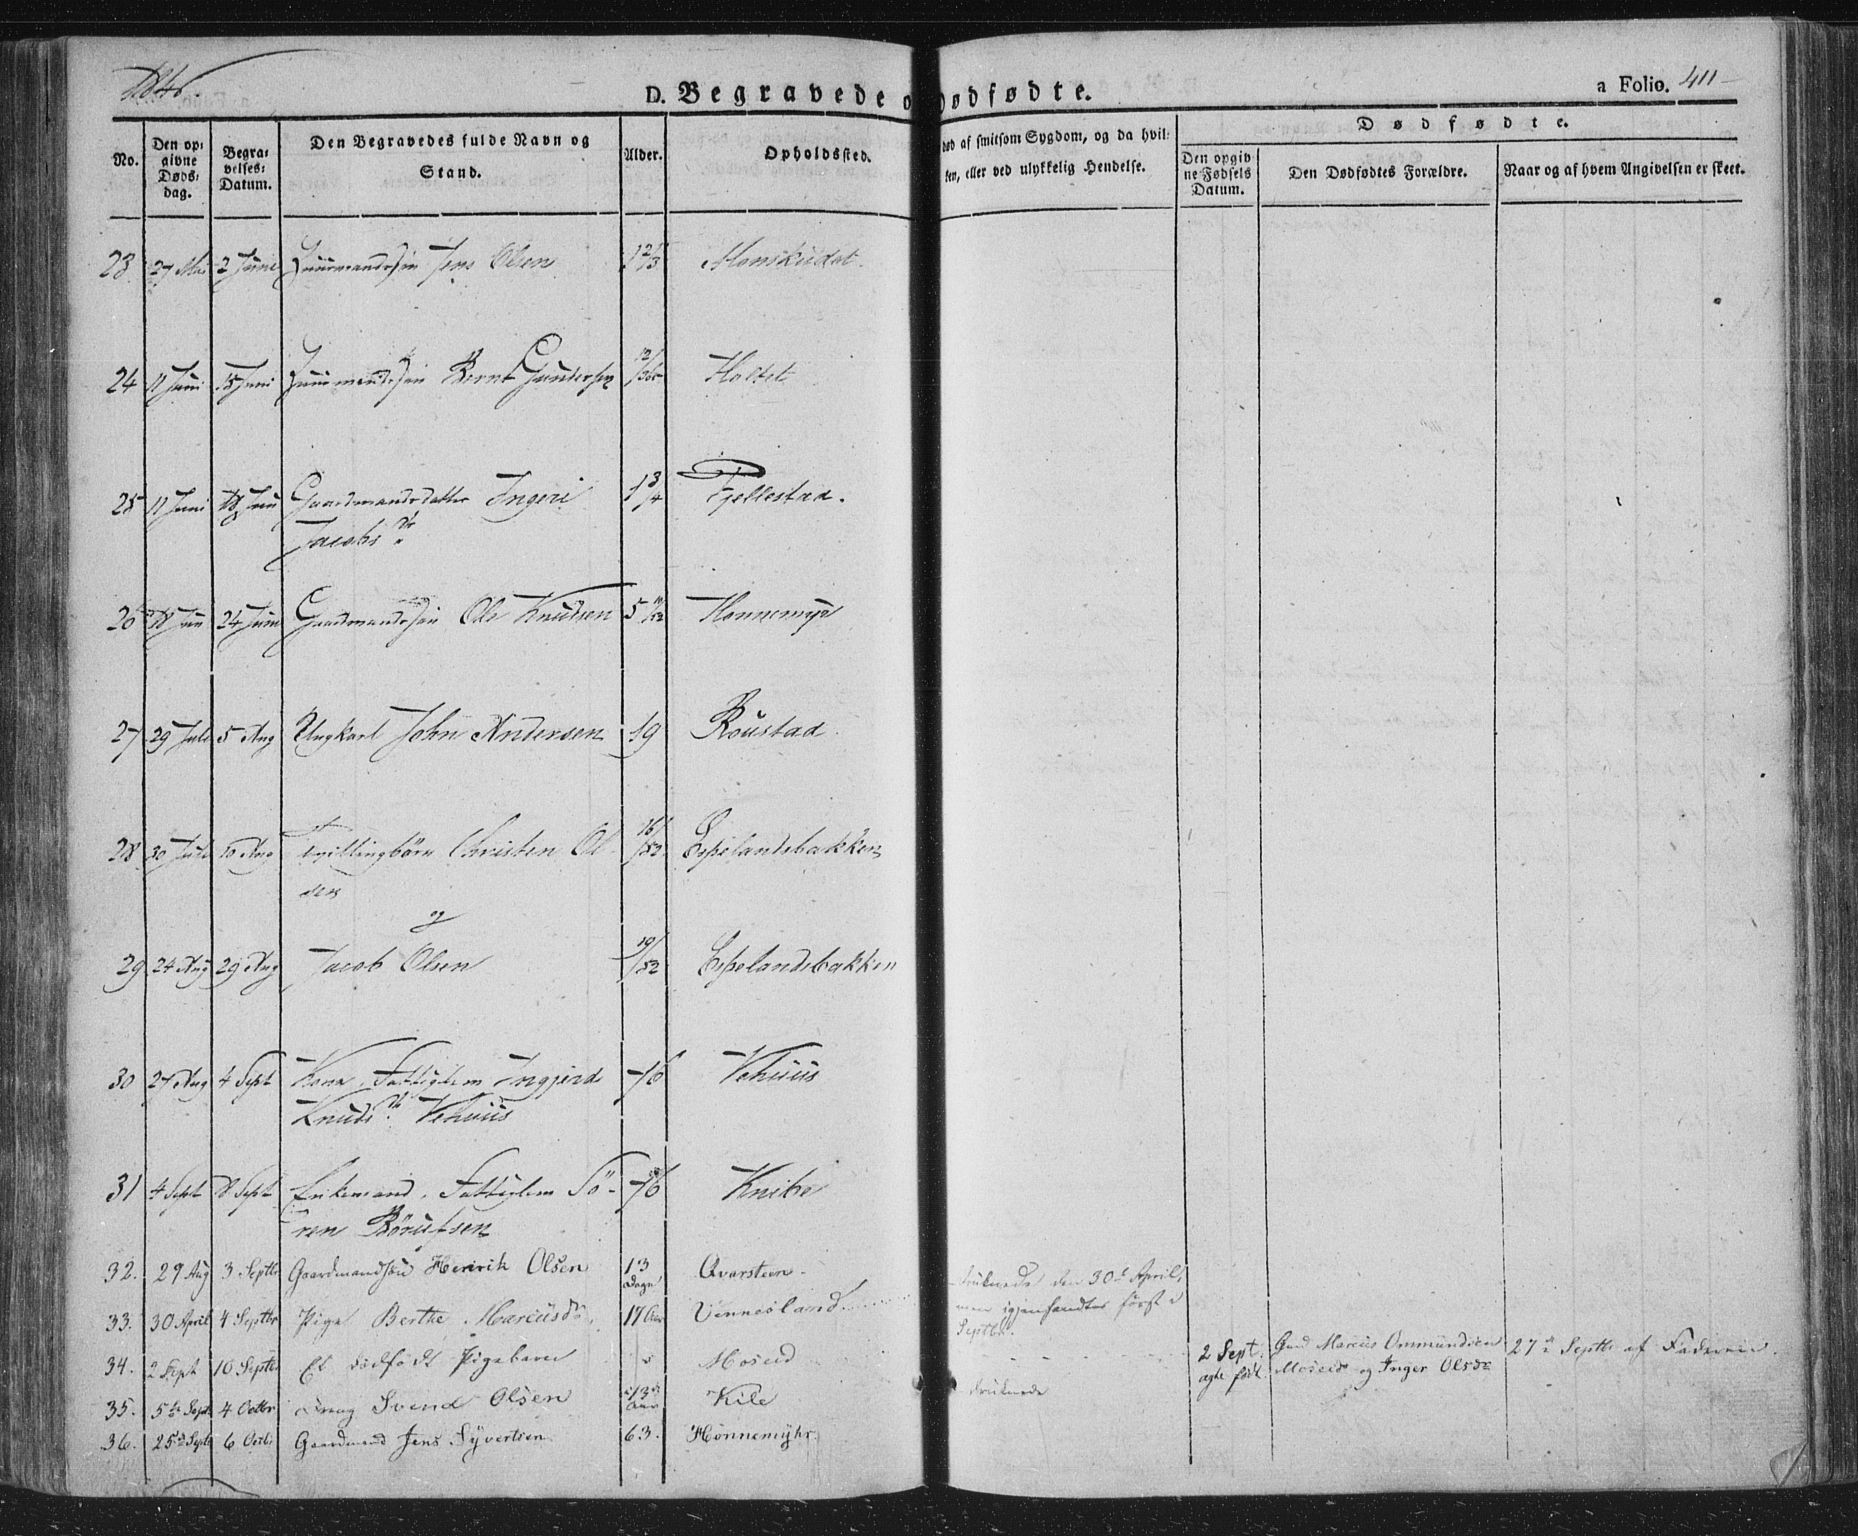 1846.
D. Begravede o Dødfødte.
a Folio. 411
No.
Den op:
givne
Døds:
dag.
Begra:
velses:
Datum.
Den Begravedes fulde Navn og
Stand.
Alder.
Opholdssted.
død af smitsom Sygdom, og da hvil:
ken, eller ved ulykkelig Hendelse.
Dødfødte.
Den opgiv
ne Fødsels
Datum.
Den Dødfødtes Forældre.
Naar og af hvem Angivelsen er skeet.
23. 27 Mai 2 Juni Huusmandssøn Jens Olsen Monskudet.
24 11 Juni 15 Juni Huusmandssøn Bernt Gundersen 12/365 Holtet
25 11 Juni 18 Juni Gaardmandsdatter Ingeri 1 3/4 Fjellestad.
Jacobs Dr
26 18 Juni 24 Juni Gaardmandssøn Ole Knudsen Honnemyr
27 29 Juli 5 Aug Ungkarl John Andersen 19 Roustad
28 30 Juli 10 Aug Tvillingbørn Christen Ol 16/52 Espelandsbakken
sen
og
29 24 Aug 29 Aug Jacob Olsen 19/52 Espelandsbakken
30 27 Aug 4 Sept Kone, Fattiglem Ingjerd 76 Vehuus
Knuds Dr. Vehuus
31 4 Sept 8 Sept Enkemand, Fattiglem Sö- 76 Knibe
ren Börufsen
32. 29 Aug 3 Septbr Gaardmandssøn Henrik Olsen 13 Dage Qvarsteen
33. 30 April 4 Septbr Pige Berthe Marcusdr. 17 Aar Vennesland druknede den 30te April,
men igjenfandtes först i
Septbr.
34. 2 Sept 10 Septbr Et dödfödt Pigebarn Moseid 2 Sept. Gmd Marcus Ommundsen 27de Septbr af Faderen.
ægte født. Moseid og Inger Olsdr
35. 5te Sept 4 Octbr Dreng Svend Olsen 13 Aar Kile druknede
36. 25de Sept 6 Octbr Gaardmand Jens Syvertsen 63. Honnemyhr.